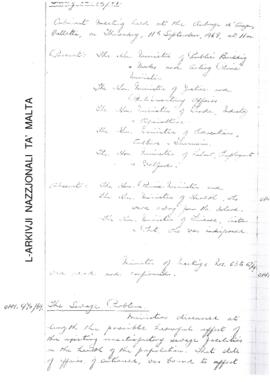 Cabinet Meeting held at the Auberge d'Aragon,
Valletta, on Thursday, 11th September, 1969, at
Present: The Hon. Minister of Public Building
& Works and Acting Prime
Minister
The Hon. Minister of Justice and
Parliamentary Affairs
The Hon. Minister of Trade, Industry
& Agriculture
The Hon. Minister of Education,
Culture & Tourism
The Hon. Minister of Labour, Employment
& Welfare.
Absent: The Hon. Prime Minister and
the Hon. Minister of Health, who
were away from the Island.
The Hon. Minister of Finance, Customs
& Port, who was indisposed
Minutes of Meetings Nos.
were read and confirmed.
The Sewage Problem.
Ministers discussed at
length the possible harmful effect of
the existing unsatisfactory sewage
on the health of the population. That state
of affairs, of course, was bound to affect
L-ARKIVJI NAZZJONALI TA' MALTA